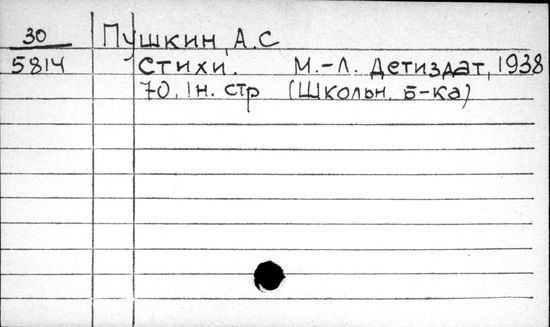 30 Пушкин, А.С
5814 Стихи. М.-Л. Детиздат, 1938
70, 1н. стр (Школьн. Б-ка)